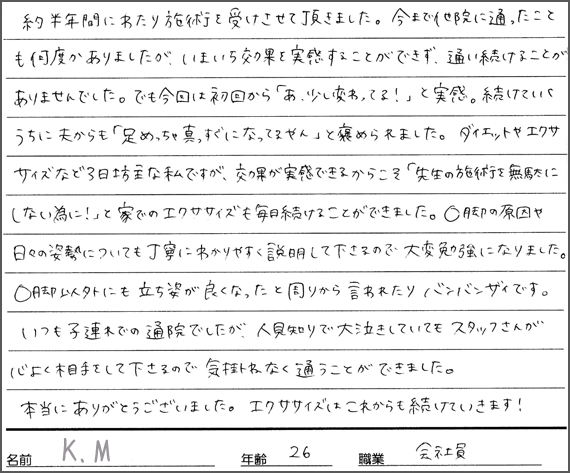 約半年間にわたり施術を受けさせて頂きました。今まで他院に通ったこと
も何度かありましたが、いまいち効果を実感することができず、通い続けることが
ありませんでした。でも今回は初回から「あ、少し変わってる！」と実感。続けていく
うちに夫からも「足めっちゃ真っすぐになってるやん」と褒められました。ダイエットやエクサ
サイズなど3日坊主な私ですが、効果が実感できるからこそ「先生の施術を無駄に
しない為に！」と家でのエクササイズも毎日続けることができました。〇脚の原因や
日々の姿勢についても丁寧にわかりやすく説明して下さるので大変勉強になりました。
〇脚以外にも立ち姿が良くなったと周りから言われたりバンバンザイです。
いつも子連れでの通院でしたが、人見知りで大泣きしていてもスタッフさんが
心よく相手をして下さるので気掛かねなく通うことができました。
本当にありがとうございました。エクササイズはこれからも続けていきます！
名前 K.M 年齢 26 職業 会社員